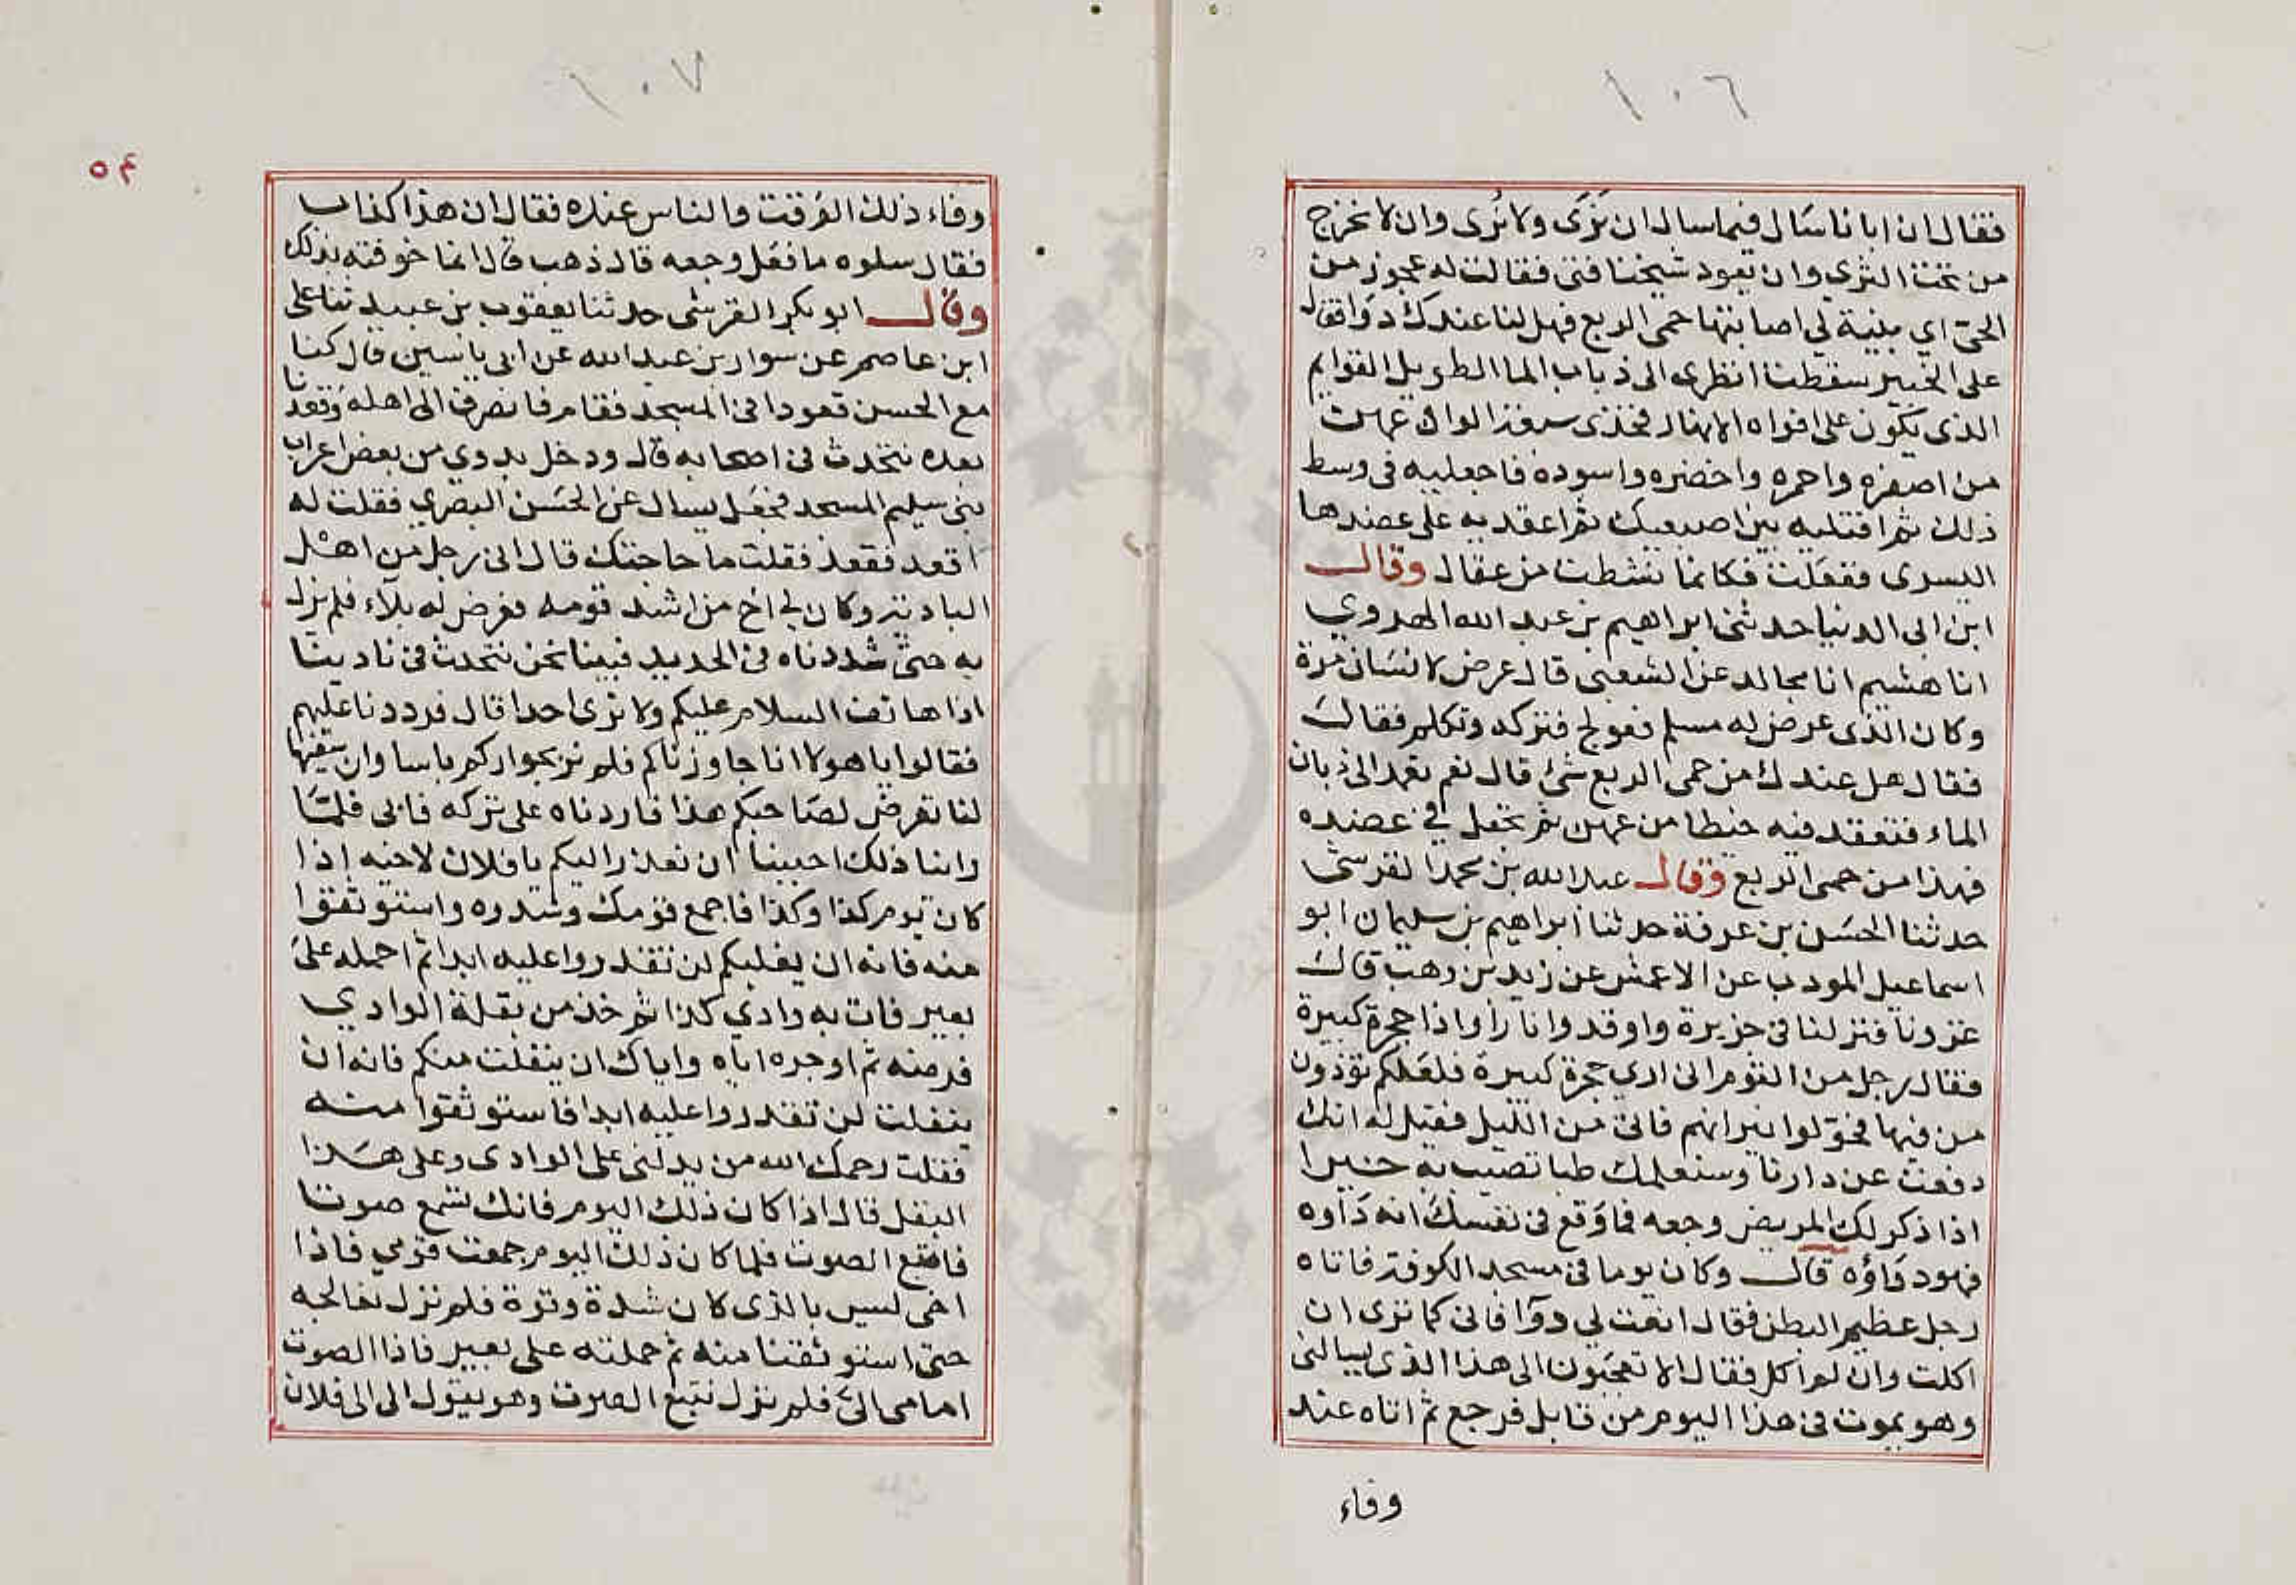 ١٠٦
فقال ان ابانا سال فيما سال ان نرى ولا نُرى وان لا نخرج
من تحت الثرى وان يعود شيخنا فتى فقالت له عجوز من
الحي اي بنية لي اصابتها حمى الربع فهل لنا عندك دوا فقال
على الخبير سقطت انظرى الى ذباب الما الطويل القوايم
الذى يكون على افواه الانهار فخذى سبعة الوان عهن
من اصفره واحمره واخضره واسوده فاجعليه فى وسط
ذلك ثم افتليه بين اصبعيك ثم اعقديه على عضدها
اليسرى ففعلت فكانما نشطت من عقال وقال
ابن ابى الدنيا حدثنى ابراهيم بن عبد الله الهروي
انا هشيم انا مجالد عن الشعبى قال عرض لانسان مرة
وكان الذى عرض له مسلم فعولج فتركه وتكلم فقال
فقال هل عندك من حمى الربع شئ قال نعم تعمد الى ذبان
الماء فتعقد فيه خيطا من عهن ثم تجعل في عضده
فهذا من حمى الربع وقال عبد الله بن محمد القرشى
حدثنا الحسَن بن عرفة حدثنا ابراهيم بن سليمان ابو
اسماعيل المودب عن الاعمش عن زيد بن وهب قال
غزونا فنزلنا فى جزيرة واوقدوا نارا واذا حجرة كبيرة
فقال رجل من القوم انى ارى حجرة كبيرة فلعلكم تؤذون
من فيها فحوّلوا نيرانهم فاتى من الليل فقيل له انك
دفعت عن دارنا وسنعلمك طبا تصيب به خيرا
اذا ذكر لك المريض وجعه فما وقع فى نفسك انه دَاوه
فهو دَوَاؤه قال وكان يوما فى مسجد الكوفة فاتاه
رجل عظيم البطن فقال انعت لي دوآ فانى كما ترى ان
اكلت وان لم اكل فقال الا تعجبون الى هذا الذى يسالنى
وهو يموت فى هذا اليوم من قابل فرجع ثم اتاه عند
وفاء
١٠٧
٥٤
وفاء ذلك الوقت والناس عنده فقال ان هذا كذاب
فقال سلوه ما فعل وجعه قال ذهب قال انما خوفته بذلك
وقال ابو بكر القرشى حدثنا يعقوب بن عبيد ثنا على
ابن عاصم عن سوار بن عبد الله عن ابى ياسين قال كنا
مع الحسن قعودا فى المسجد فقام فانصرف الى اهله وقعدنا
بعده نتحدث فى اصحابه قال ودخل بدوي من بعض اعراب
بنى سليم المسجد فجعل يسال عن الحسَن البصري فقلت له
اقعد فقعد فقلت ما حاجتك قال انى رجل من اهل
البادية وكان لي اخ من اشد قومه فعرض له بلآء فلم يزل
به حتى شددناه فى الحديد فبينا نحن نتحدث فى نادينا
اذا هاتف السلام عليكم ولا نرى احدا قال فرددنا عليهم
فقالوا يا هولا انا جاورناكم فلم نر بجواركم باسا وان سفيها
لنا تعرض لصاحبكم هذا فاردناه على تركه فابى فلمّا
راينا ذلك احببنا ان نعذر اليكم يا فلان لاخيه اذا
كان يوم كذا وكذا فاجمع قومك وشدوه واستوثقوا
منه فانه ان يغلبكم لن تقدروا عليه ابدا ثم احمله على
بعير فات به وادي كذا ثم خذ من بقلة الوادي
فرضه ثم اوجره اياه واياك ان ينفلت منكم فانه ان
ينفلت لن تقدروا عليه ابدا فاستوثقوا منه
فقلت رحمك الله من يدلنى على الوادى وعلى هذا
البقل قال اذا كان ذلك اليوم فانك تسمع صوتا
فاتبع الصوت فلما كان ذلك اليوم جمعت قومي فاذا
اخى ليس بالذى كان شدة وقوة فلم نزل نعالجه
حتى استوثقنا منه ثم حملته على بعير فاذا الصوت
امامى الىّ فلم نزل نتبع الصوت وهو يقول الى الى فلان